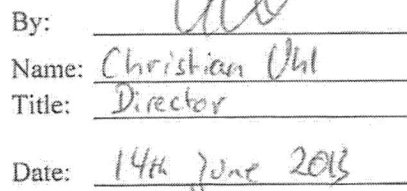 By:
Name: Christian Uhl
Title: Director
Date: 14th June 2013